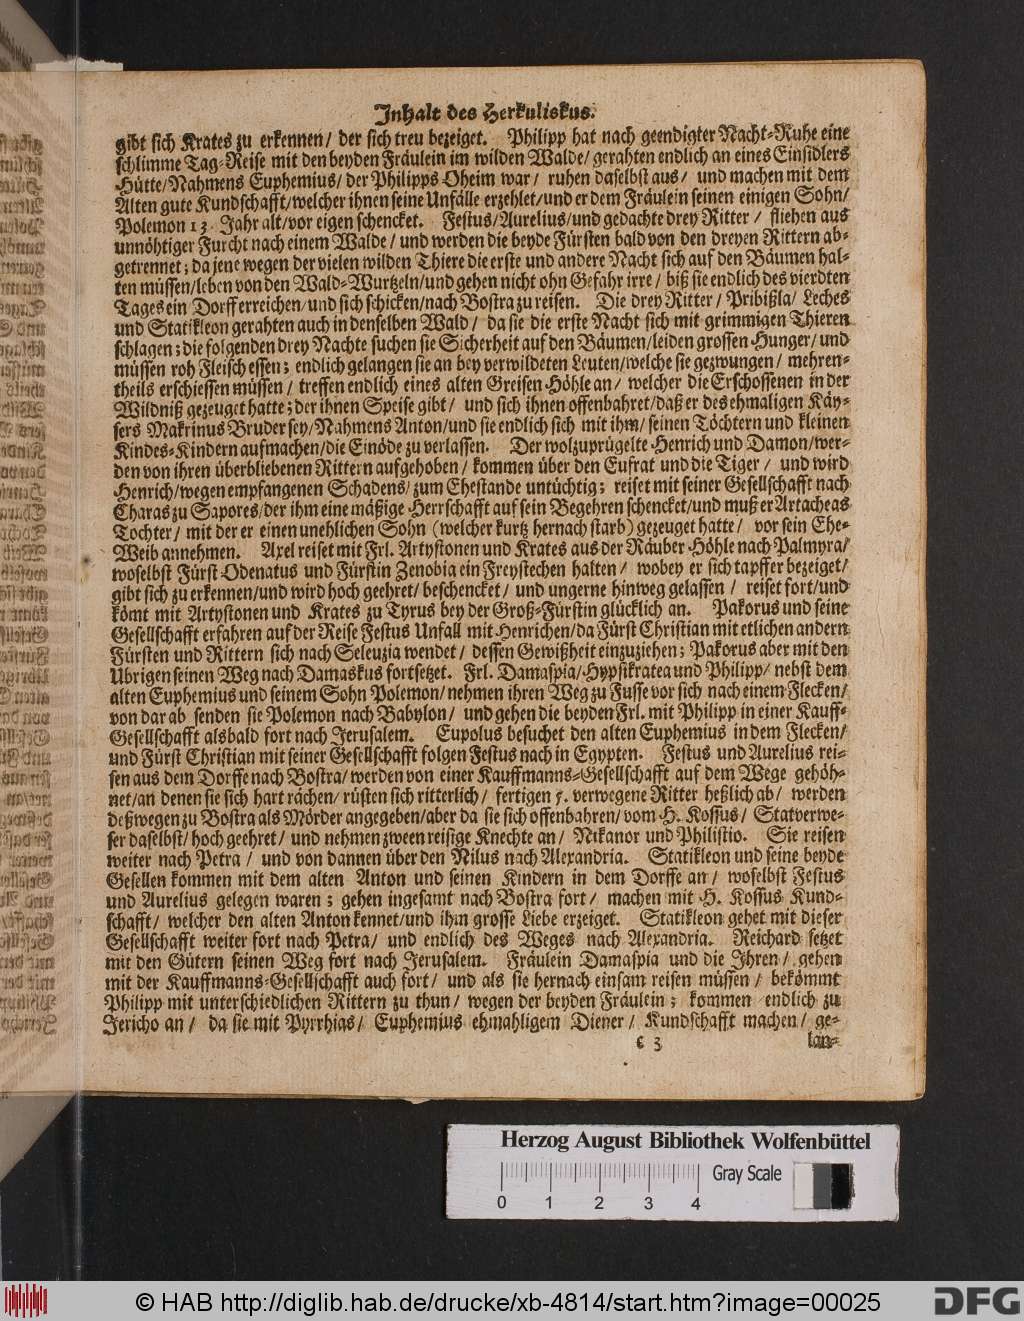 Inhalt des Herkuliskus.
gibt sich Krates zu erkennen/ der sich treu bezeiget. Philipp hat nach geendigter Nacht-Ruhe eine
schlimme Tag-Reise mit den beyden Fräulein im wilden Walde/ gerahten endlich an eines Einsidlers
Hütte/ Nahmens Euphemius/ der Philipps Oheim war/ ruhen daselbst aus/ und machen mit dem
Alten gute Kundschafft/ welcher ihnen seine Unfälle erzehlet/ und er dem Fräulein seinen einigen Sohn/
Polemon 13. Jahr alt/ vor eigen schencket. Festus/ Aurelius/ und gedachte drey Ritter/ fliehen aus
unnöhtiger Furcht nach einem Walde/ und werden die beyde Fürsten bald von den dreyen Rittern ab-
getrennet; da jene wegen der vielen wilden Thiere die erste und andere Nacht sich auf den Bäumen hal-
ten müssen/ leben von den Wald-Wurtzeln/ und gehen nicht ohn Gefahr irre/ biß sie endlich des vierdten
Tages ein Dorff erreichen/ und sich schicken/ nach Bostra zu reisen. Die drey Ritter/ Pribißla/ Leches
und Statikleon gerahten auch in denselben Wald/ da sie die erste Nacht sich mit grimmigen Thieren
schlagen; die folgenden drey Nachte suchen sie Sicherheit auf den Bäumen/ leiden grossen Hunger/ und
müssen roh Fleisch essen; endlich gelangen sie an bey verwildeten Leuten/ welche sie gezwungen/ mehren-
theils erschiessen müssen/ treffen endlich eines alten Greisen Höhle an/ welcher die Erschossenen in der
Wildniß gezeuget hatte; der ihnen Speise gibt/ und sich ihnen offenbahret/ daß er des ehmaligen Käy-
sers Makrinus Bruder sey/ Nahmens Anton/ und sie endlich sich mit ihm/ seinen Töchtern und kleinen
Kindes-Kindern aufmachen/ die Einöde zu verlassen. Der wolzuprügelte Henrich und Damon/ wer-
den von ihren überbliebenen Rittern aufgehoben/ kommen über den Eufrat und die Tiger/ und wird
Henrich/ wegen empfangenen Schadens/ zum Ehestande untüchtig; reiset mit seiner Gesellschafft nach
Charas zu Sapores/ der ihm eine mäßige Herrschafft auf sein Begehren schencket/ und muß er Artacheas
Tochter/ mit der er einen unehlichen Sohn (welcher kurtz hernach starb) gezeuget hatte/ vor sein Ehe-
Weib annehmen. Axel reiset mit Frl. Artystonen und Krates aus der Räuber Höhle nach Palmyra/
woselbst Fürst Odenatus und Fürstin Zenobia ein Freystechen halten/ wobey er sich tapffer bezeiget/
gibt sich zu erkennen/ und wird hoch geehret/ beschencket/ und ungerne hinweg gelassen/ reiset fort/ und
kömt mit Artystonen und Krates zu Tyrus bey der Groß-Fürstin glücklich an. Pakorus und seine
Gesellschafft erfahren auf der Reise Festus Unfall mit Henrichen/ da Fürst Christian mit etlichen andern
Fürsten und Rittern sich nach Seleuzia wendet/ dessen Gewißheit einzuziehen; Pakorus aber mit den
Übrigen seinen Weg nach Damaskus fortsetzet. Frl. Damaspia/ Hypsikratea und Philipp/ nebst dem
alten Euphemius und seinem Sohn Polemon/ nehmen ihren Weg zu Fusse vor sich nach einem Flecken/
von dar ab senden sie Polemon nach Babylon/ und gehen die beyden Frl. mit Philipp in einer Kauff-
Gesellschafft alsbald fort nach Jerusalem. Eupolus besuchet den alten Euphemius in dem Flecken/
und Fürst Christian mit seiner Gesellschafft folgen Festus nach in Egypten. Festus und Aurelius rei-
sen aus dem Dorffe nach Bostra/ werden von einer Kauffmanns-Gesellschafft auf dem Wege gehöh-
net/ an denen sie sich hart rächen/ rüsten sich ritterlich/ fertigen 5. verwegene Ritter heßlich ab/ werden
deßwegen zu Bostra als Mörder angegeben/ aber da sie sich offenbahren/ vom H. Kossus/ Statverwe-
ser daselbst/ hoch geehret/ und nehmen zween reisige Knechte an/ Nikanor und Philistio. Sie reisen
weiter nach Petra/ und von dannen über den Nilus nach Alexandria. Statikleon und seine beyde
Gesellen kommen mit dem alten Anton und seinen Kindern in dem Dorffe an/ woselbst Festus
und Aurelius gelegen waren; gehen ingesamt nach Bostra fort/ machen mit H. Kossus Kund-
schafft/ welcher den alten Anton kennet/ und ihm grosse Liebe erzeiget. Statikleon gehet mit dieser
Gesellschafft weiter fort nach Petra/ und endlich des Weges nach Alexandria. Reichard setzet
mit den Gütern seinen Weg fort nach Jerusalem. Fräulein Damaspia und die Ihren/ gehen
mit der Kauffmanns-Gesellschafft auch fort/ und als sie hernach einsam reisen müssen/ bekömmt
Philipp mit unterschiedlichen Rittern zu thun/ wegen der beyden Fräulein; kommen endlich zu
Jericho an/ da sie mit Pyrrhias/ Euphemius ehmahligem Diener/ Kundschafft machen/ ge-
c 3 lan-
Herzog August Bibliothek Wolfenbüttel
Gray Scale
0 1 2 3 4
© HAB http://diglib.hab.de/drucke/xb-4814/start.htm?image=00025
DFG